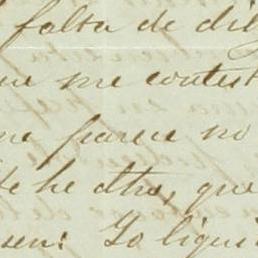 falta de dil
me contest
me parece no
te he dho, que
sen: Yo liqui